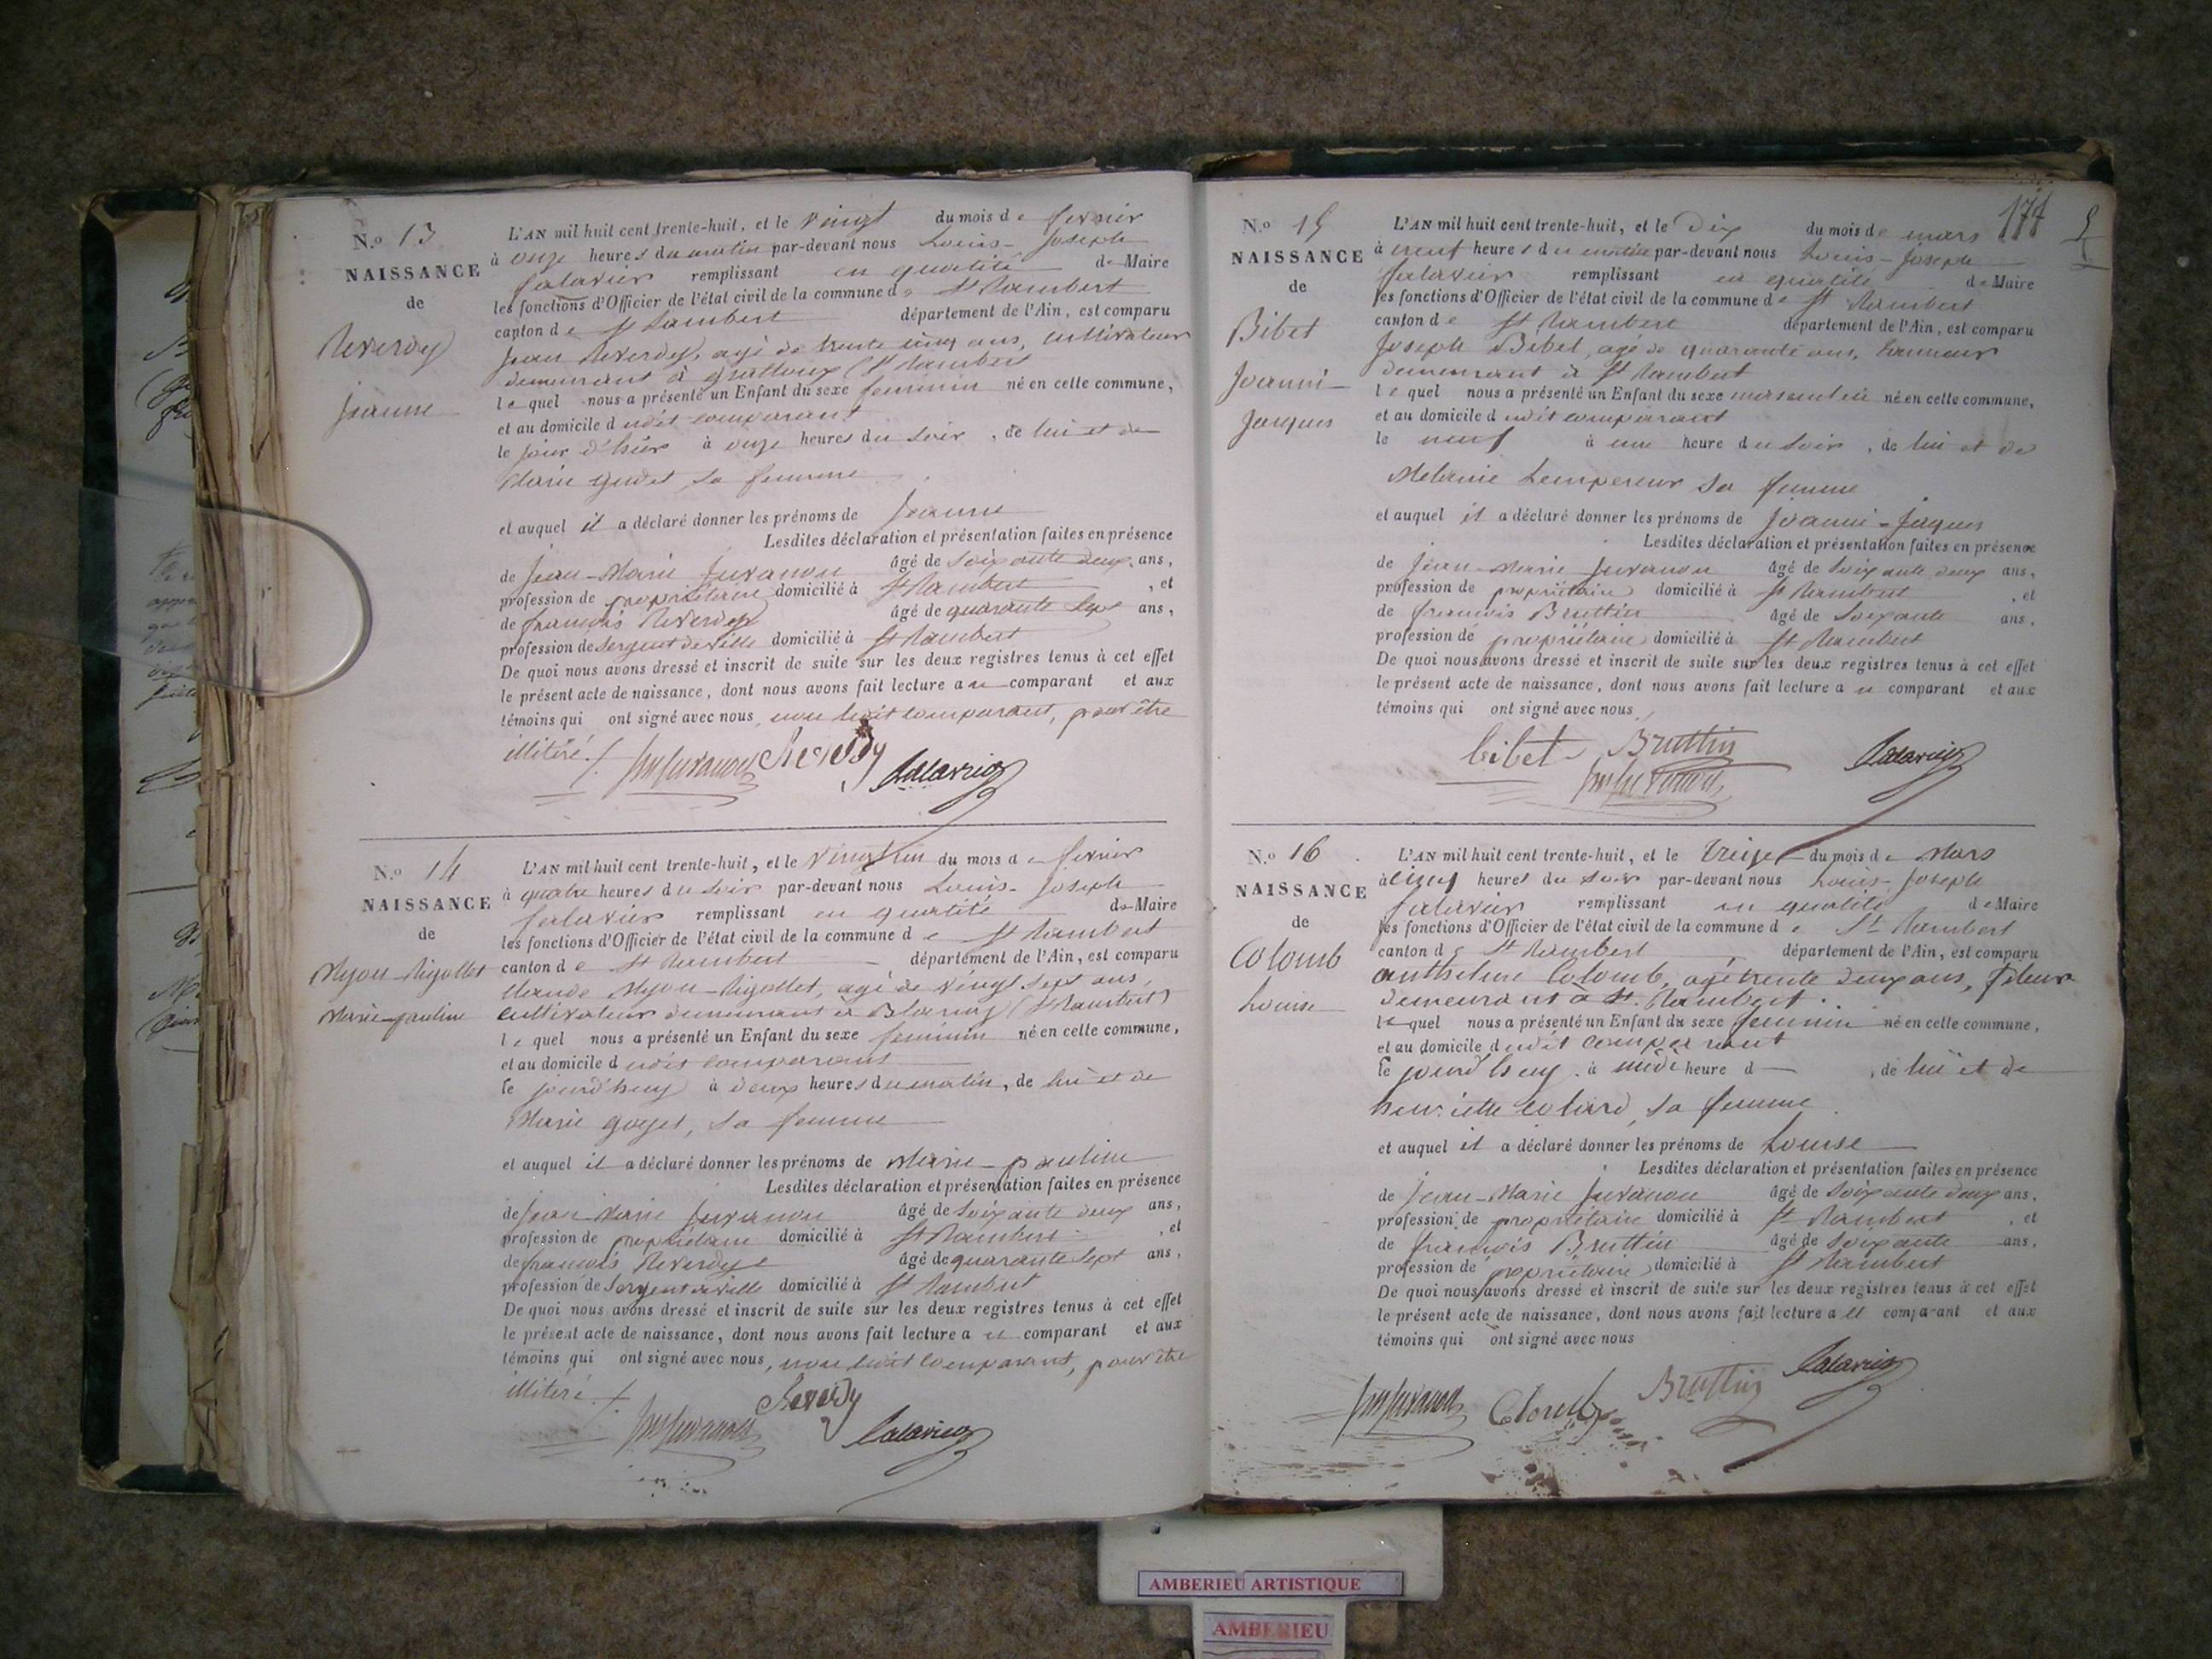 N.o 13
NAISSANCE
de
Reverdy
Jeanne
L'AN mil huit cent trente-huit, et le vingt du mois de fevrier
à onze heures du matin par-devant nous Louis-Joseph
Salavier remplissant en qualité de Maire
les fonctions d'Officier de l'état civil de la commune de St Rambert
canton de St Rambert département de l'Ain, est comparu
Jean Reverdy, agé de trente cinq ans, cultivateur
demeurant à Grattoux (St Rambert
le quel nous a présenté un Enfant du sexe feminin né en cette commune,
et au domicile dudit comparant
le jour d'hier à onze heures du soir, de lui et de
Marie Gudet, sa femme
et auquel il a déclaré donner les prénoms de Jeanne
Lesdites déclaration et présentation faites en présence
de Jean-Marie Juvanon âgé de soixante deux ans,
profession de propriétaire domicilié à St Rambert, et
de françois Reverdy âgé de quarante sept ans,
profession de Sergent de ville domicilié à St Rambert
De quoi nous avons dressé et inscrit de suite sur les deux registres tenus à cet effet
le présent acte de naissance, dont nous avons fait lecture au comparant et aux
témoins qui ont signé avec nous, non ledit comparant, pour être
illitéré./.
Juvanon Reverdy Salavier
N.o 14
NAISSANCE
de
Myon-Rigollet
Marie-pauline
L'AN mil huit cent trente-huit, et le vingt un du mois de fevrier
à quatre heures du soir par-devant nous Louis-Joseph
Salavier remplissant en qualité de Maire
les fonctions d'Officier de l'état civil de la commune de St Rambert
canton de St Rambert département de l'Ain, est comparu
Claude Myon-Rigollet, agé de vingt sept ans,
cultivateur demeurant à Blanaz (St Rambert)
le quel nous a présenté un Enfant du sexe feminin né en cette commune,
et au domicile dudit comparant
le jourd'huy à deux heures du matin, de lui et de
Marie goyet, sa femme
et auquel il a déclaré donner les prénoms de Marie-pauline
Lesdites déclaration et présentation faites en présence
de Jean-Marie Juvanon âgé de soixante deux ans,
profession de propriétaire domicilié à St Rambert, et
de françois Reverdy âgé de quarante sept ans,
profession de Sergent de ville domicilié à St Rambert
De quoi nous avons dressé et inscrit de suite sur les deux registres tenus à cet effet
le présent acte de naissance, dont nous avons fait lecture au comparant et aux
témoins qui ont signé avec nous, non ledit comparant, pour être
illitéré./.
Juvanon Reverdy Salavier
174
5
N.o 15
NAISSANCE
de
Bibet
Joanni-
Jaques
L'AN mil huit cent trente-huit, et le Dix du mois de mars
à neuf heures du matin par-devant nous Louis-Joseph
Salavier remplissant en qualité de Maire
les fonctions d'Officier de l'état civil de la commune de St Rambert
canton de St Rambert département de l'Ain, est comparu
Joseph Bibet, agé de quarante ans, tanneur
demeurant à St Rambert
le quel nous a présenté un Enfant du sexe masculin né en cette commune,
et au domicile dudit comparant
le neuf à une heure du soir, de lui et de
Melanie Lempereur sa femme
et auquel il a déclaré donner les prénoms de Joanni-Jaques
Lesdites déclaration et présentation faites en présence
de Jean-Marie Juvanon âgé de soixante deux ans,
profession de propriétaire domicilié à St Rambert, et
de françois Bruttin âgé de soixante ans,
profession de propriétaire domicilié à St Rambert
De quoi nous avons dressé et inscrit de suite sur les deux registres tenus à cet effet
le présent acte de naissance, dont nous avons fait lecture au comparant et aux
témoins qui ont signé avec nous
bibet Bruttin Salavier
Juvanon
N.o 16
NAISSANCE
de
Colomb
Louise
L'AN mil huit cent trente-huit, et le treize du mois de Mars
à cinq heures du soir par-devant nous Louis-Joseph
Salavier remplissant en qualité de Maire
les fonctions d'Officier de l'état civil de la commune de St Rambert
canton de St Rambert département de l'Ain, est comparu
anthelme Colomb, agé trente deux ans, fileur
demeurant à St. Rambert.
le quel nous a présenté un Enfant du sexe feminin né en cette commune,
et au domicile dudit comparant
le jourd'huy à midi heure d , de lui et de
henriette Colard, sa femme
et auquel il a déclaré donner les prénoms de Louise
Lesdites déclaration et présentation faites en présence
de Jean-Marie Juvanon âgé de soixante deux ans,
profession de propriétaire domicilié à St Rambert, et
de françois Bruttin âgé de soixante ans,
profession de propriétaire domicilié à St Rambert
De quoi nous avons dressé et inscrit de suite sur les deux registres tenus à cet effet
le présent acte de naissance, dont nous avons fait lecture au comparant et aux
témoins qui ont signé avec nous
Juvanon Bruttin Salavier
AMBERIEU ARTISTIQUE
AMBERIEU